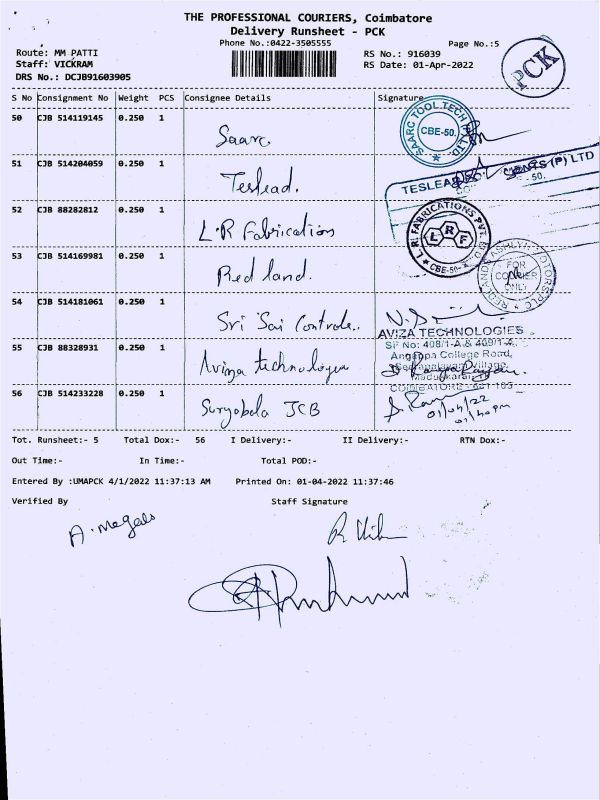 THE PROFESSIONAL COURIERS, Coimbatore
Delivery Runsheet - PCK
Phone No.:0422-3505555
Page No.:5
Route: MM PATTI
RS No.: 916039
Staff: VICKRAM
RS Date: 01-Apr-2022
DRS No.: DCJB91603905
PCK
S No Consignment No Weight PCS Consignee Details Signature
50 CJB 514119145 0.250 1 Saarc
SAARC TOOL TECH (P) LTD
CBE-50.
51 CJB 514204059 0.250 1 Teslead.
TESLEAD (P) LTD
- 50.
52 CJB 88282812 0.250 1 L.R Fabrication
L.R. FABRICATIONS PVT. LTD.
LRF
CBE-50
53 CJB 514169981 0.250 1 Red land.
FOR
COURIER
ONLY
54 CJB 514181061 0.250 1 Sri Sai Controls.
AVIZA TECHNOLOGIES
SF No: 408/1-A & 409/1-A,
Angappa College Road,
55 CJB 88328931 0.250 1 Aviza technologies
COIMBATORE - 641 105
56 CJB 514233228 0.250 1 Suryabala JCB
01/04/22
Tot. Runsheet:- 5 Total Dox:- 56 I Delivery:- II Delivery:- RTN Dox:-
Out Time:- In Time:- Total POD:-
Entered By :UMAPCK 4/1/2022 11:37:13 AM Printed On: 01-04-2022 11:37:46
Verified By Staff Signature